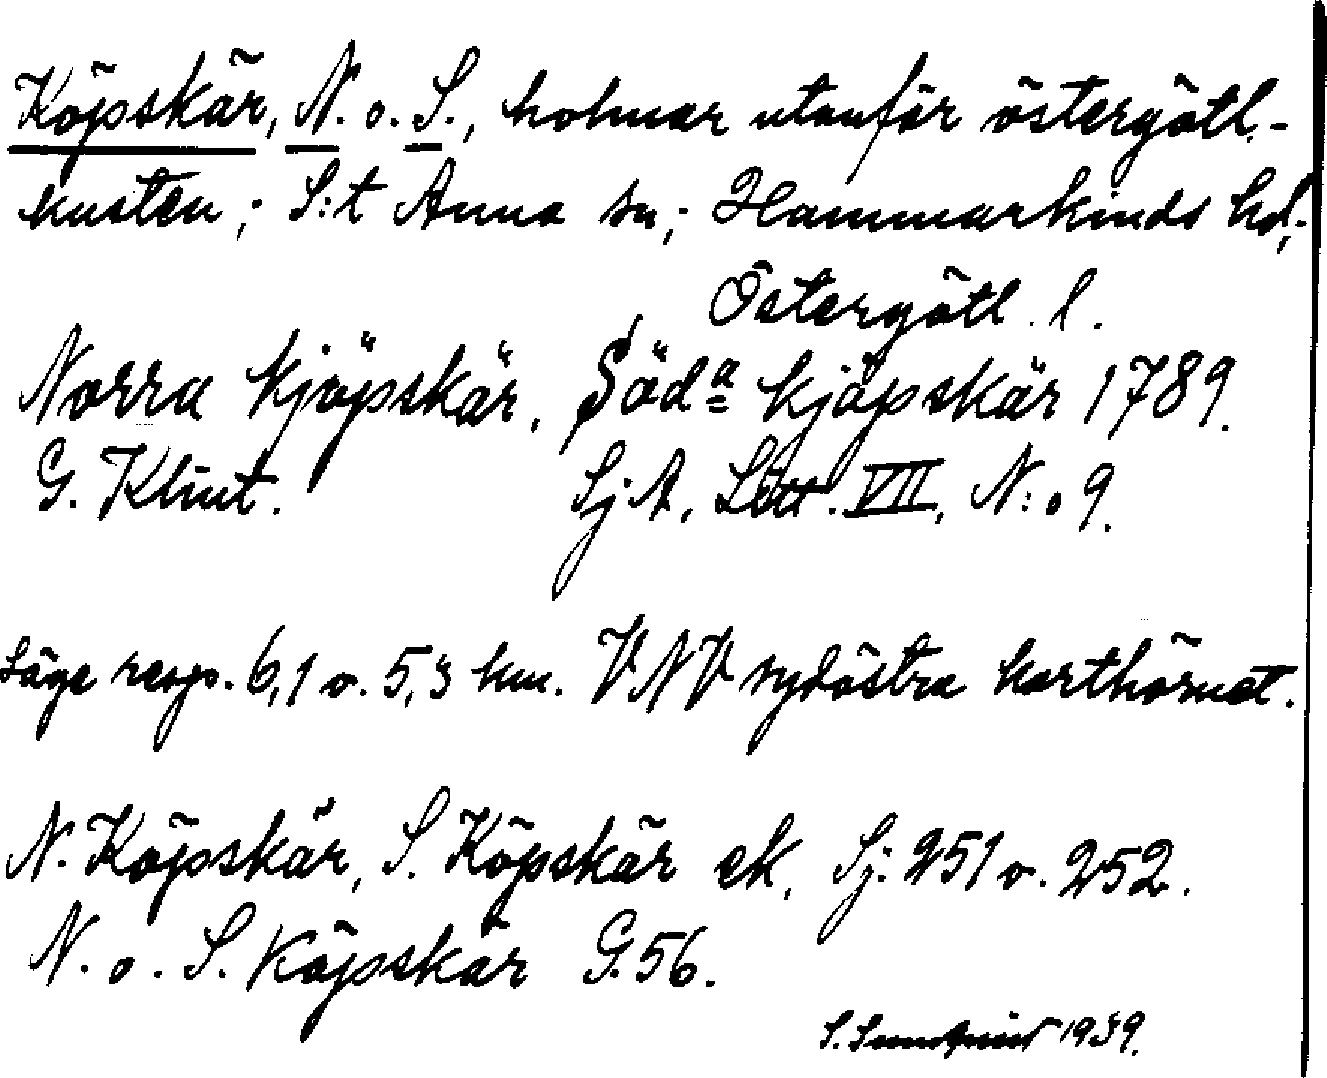 Köpskär, N. o. S., holmar utanför östergötl.-
kusten; S:t Anna sn; Hammarkinds hd,
Östergötl. l.
Norra kjöpskär, Södª kjöpskär 1789.
G. Klint. Sj A, Litt. VII, N:o 9.
Läge resp. 6,1 o. 5,3 km. VNV sydöstra karthörnet.
N. Köpskär, S. Köpskär ek, Sj: 251 o. 252.
N. o. S. Köpskär G. 56.
S. Sundqvist 1939.